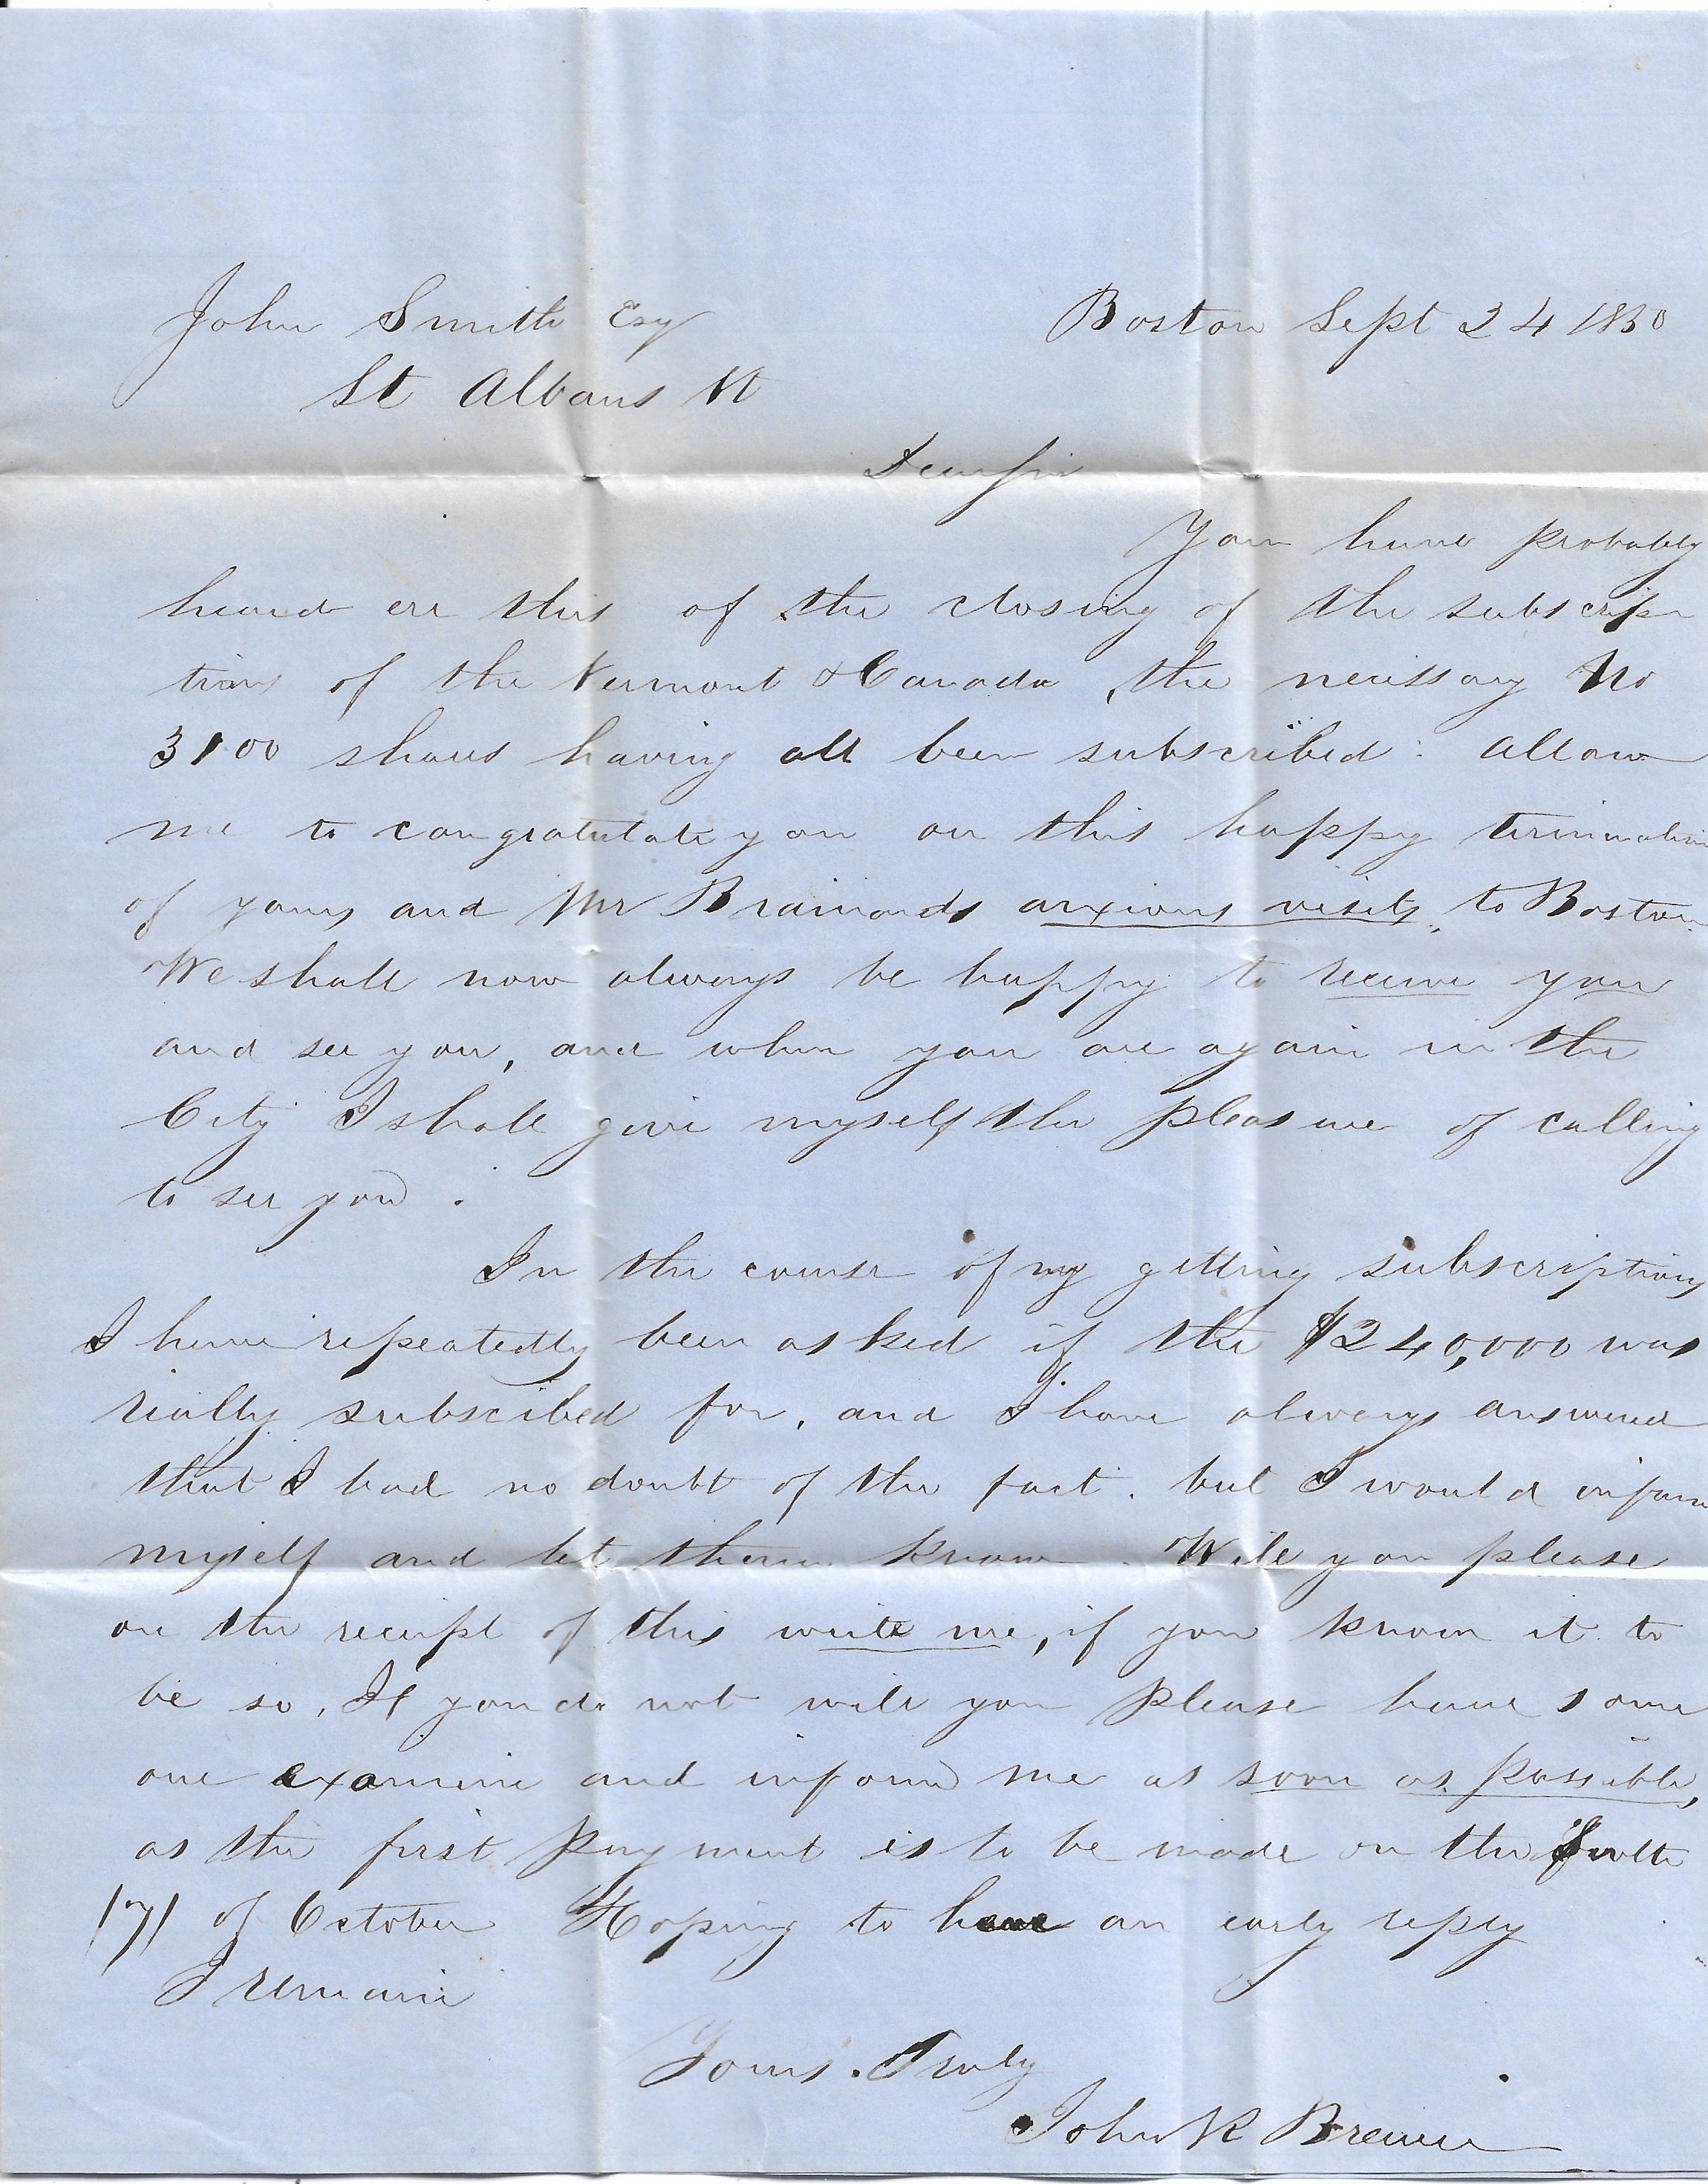 John Smith Esq
Boston Sept 24 1850
St Albans Vt
Dear Sir
You have probably
heard ere this of the closing of the subscrip
tions of the Vermont & Canada, the necessary No
3100 shares having all been subscribed: Allow
me to congratulate you on this happy termination
of yours and Mr Brainards anxious visits, to Boston.
We shall now always be happy to receive you
and see you, and when you are again in the
City I shall give myself the pleasure of calling
to see you.
In the course of my getting subscriptions
I have repeatedly been asked if the $240,000 was
really subscibed for, and I have always answered
that I had no doubt of the fact. but I would inform
myself and let them know. Will you please
on the receipt of this write me, if you know it to
be so, If you do not will you please have some
one examine and inform me as soon as possible,
as the first payment is to be made on the
17 of October Hoping to have an early reply
I remain
Yours. Truly
John R Brewer